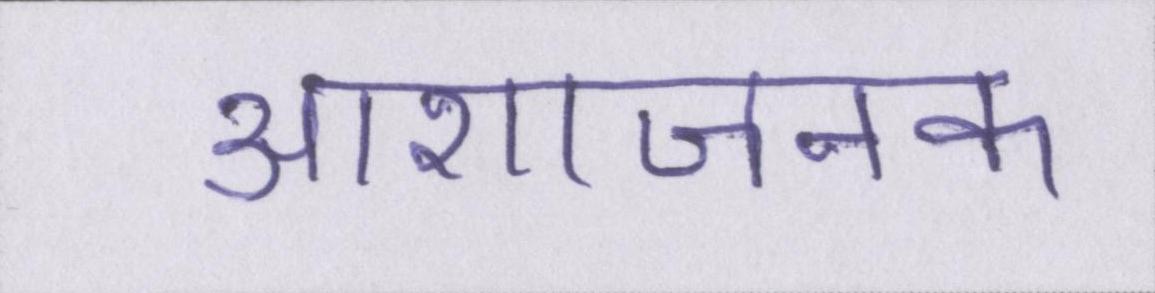 आशाजनक